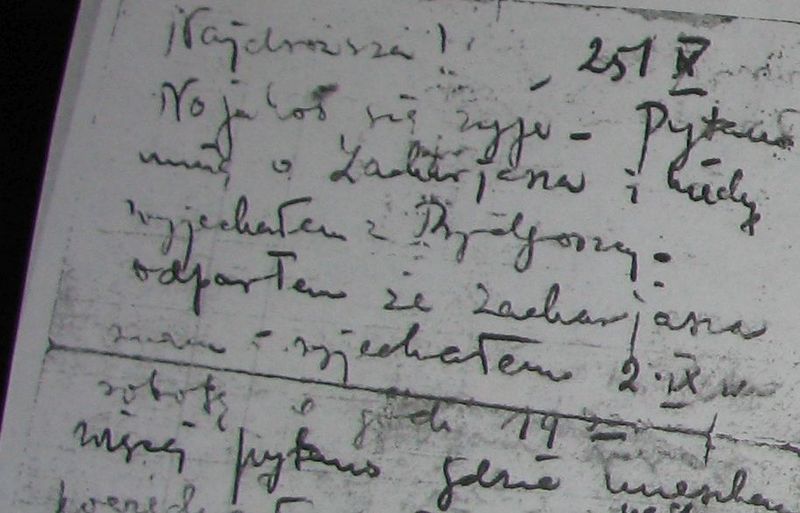 Najdroższa! 25/IX
No jakoś się żyje - Pytano
mnię o Zacharjasza i kiedy
wyjechałem z Bydgoszczy.
odparłem że Zacharjasza
znam i wyjechałem 2.IX w
sobotę o godz 19
więcej pytano gdzie